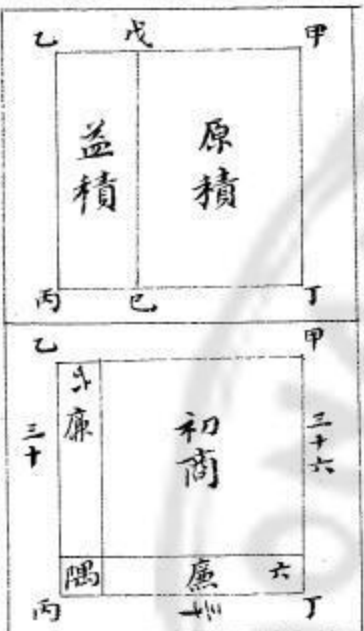 甲
戊
乙
原積
益積
丁
已
丙
甲
乙
三十六
初商
廉
三十
六
廉
隅
丁
丙